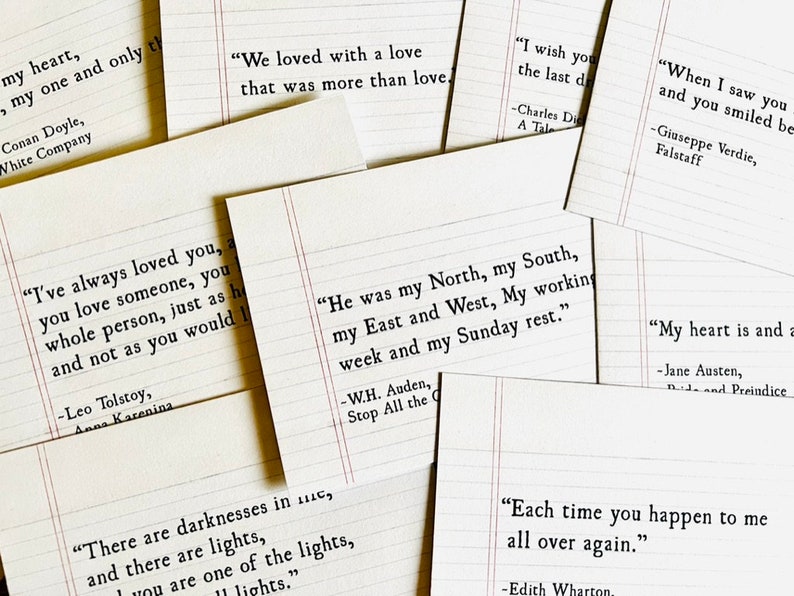 my heart,
, my one and only
Conan Doyle,
White Company
“We loved with a love
that was more than love.
“I wish you
the last
-Charles
A Tale
“When I saw you
and you smiled
-Giuseppe Verdie,
Falstaff
“I've always loved you,
you love someone, you
whole person, just as
and not as you would
-Leo Tolstoy,
Anna Karenina
“He was my North, my South,
my East and West, My working
week and my Sunday rest.”
-W.H. Auden,
Stop All the
“My heart is and
-Jane Austen,
Pride and Prejudice
“There are darknesses in life,
and there are lights,
you are one of the lights,
lights.”
“Each time you happen to me
all over again.”
-Edith Wharton,